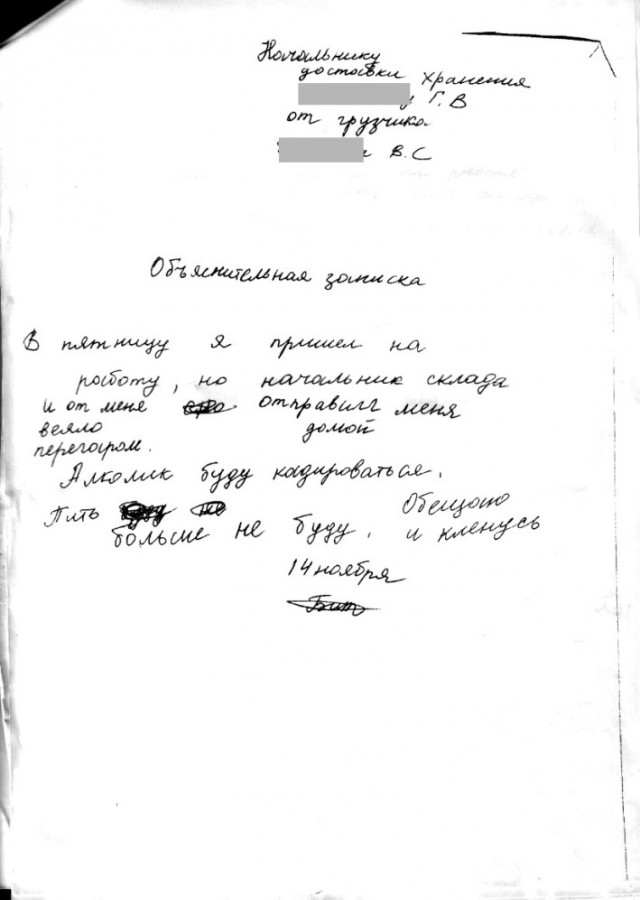 Начальнику
доставки хранения
у Г.В
от грузчика
В.С
Объяснительная записка
В пятницу я пришел на
работу, но начальник склада
и от меня отправил меня
веяло домой
перегаром.
Алколик буду кадироваться.
Пить Обещаю
больше не буду, и клянусь
14 ноября